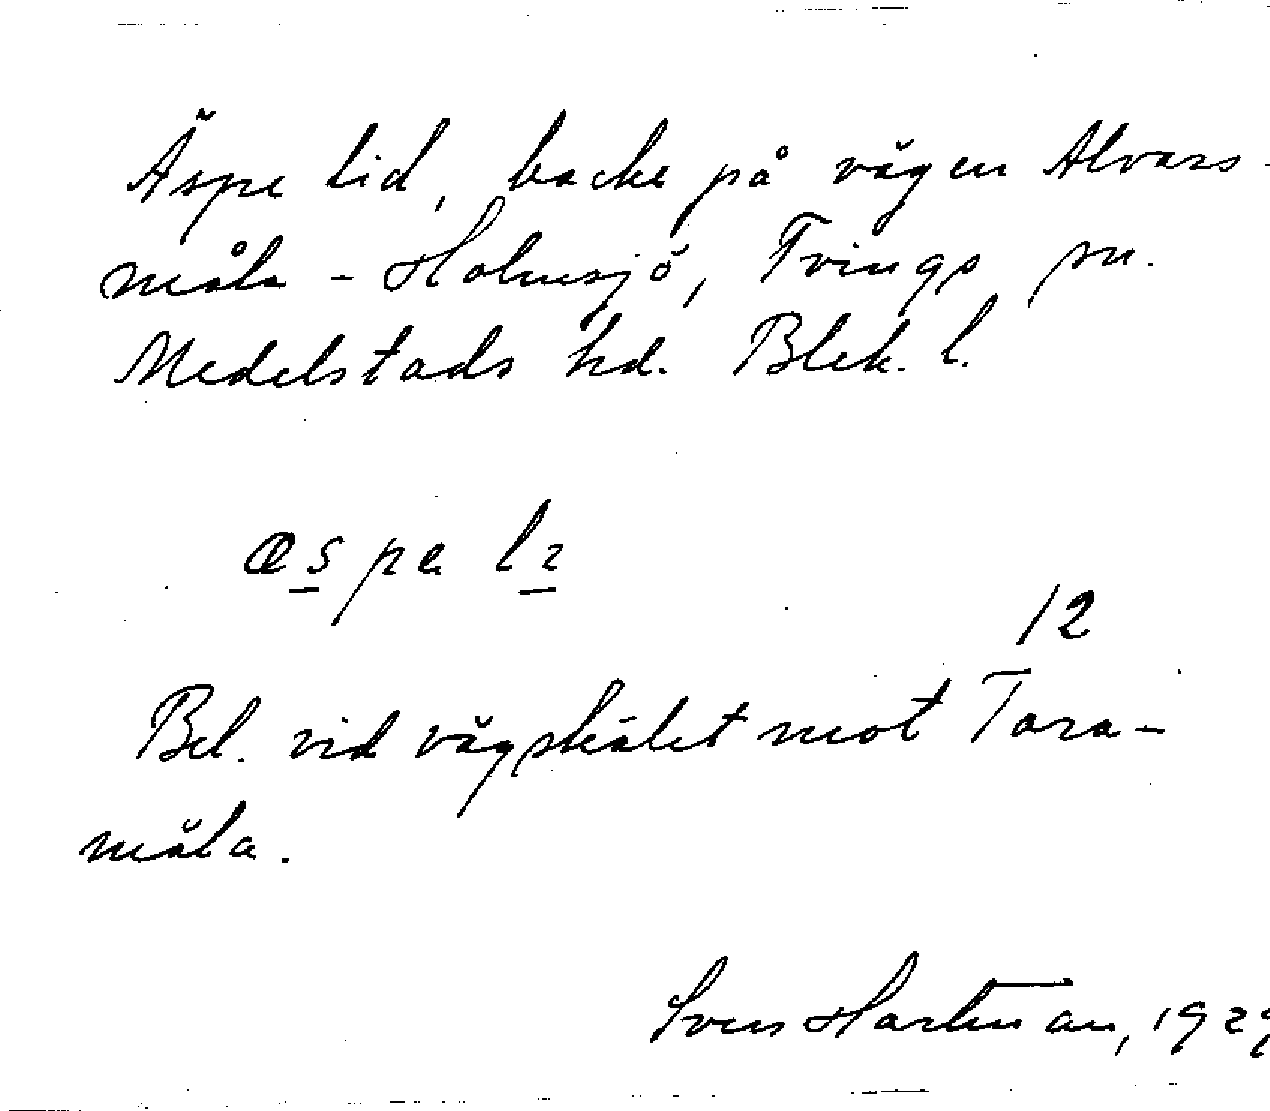 Äspe lid, backe på vägen Alvars-
måla - Holmsjö, Tvings sn.
Medelstads hd. Blek. l.
æspa lı
12
Bel. vid vägskälet mot Tara-
måla.
Sven Hartman, 1929